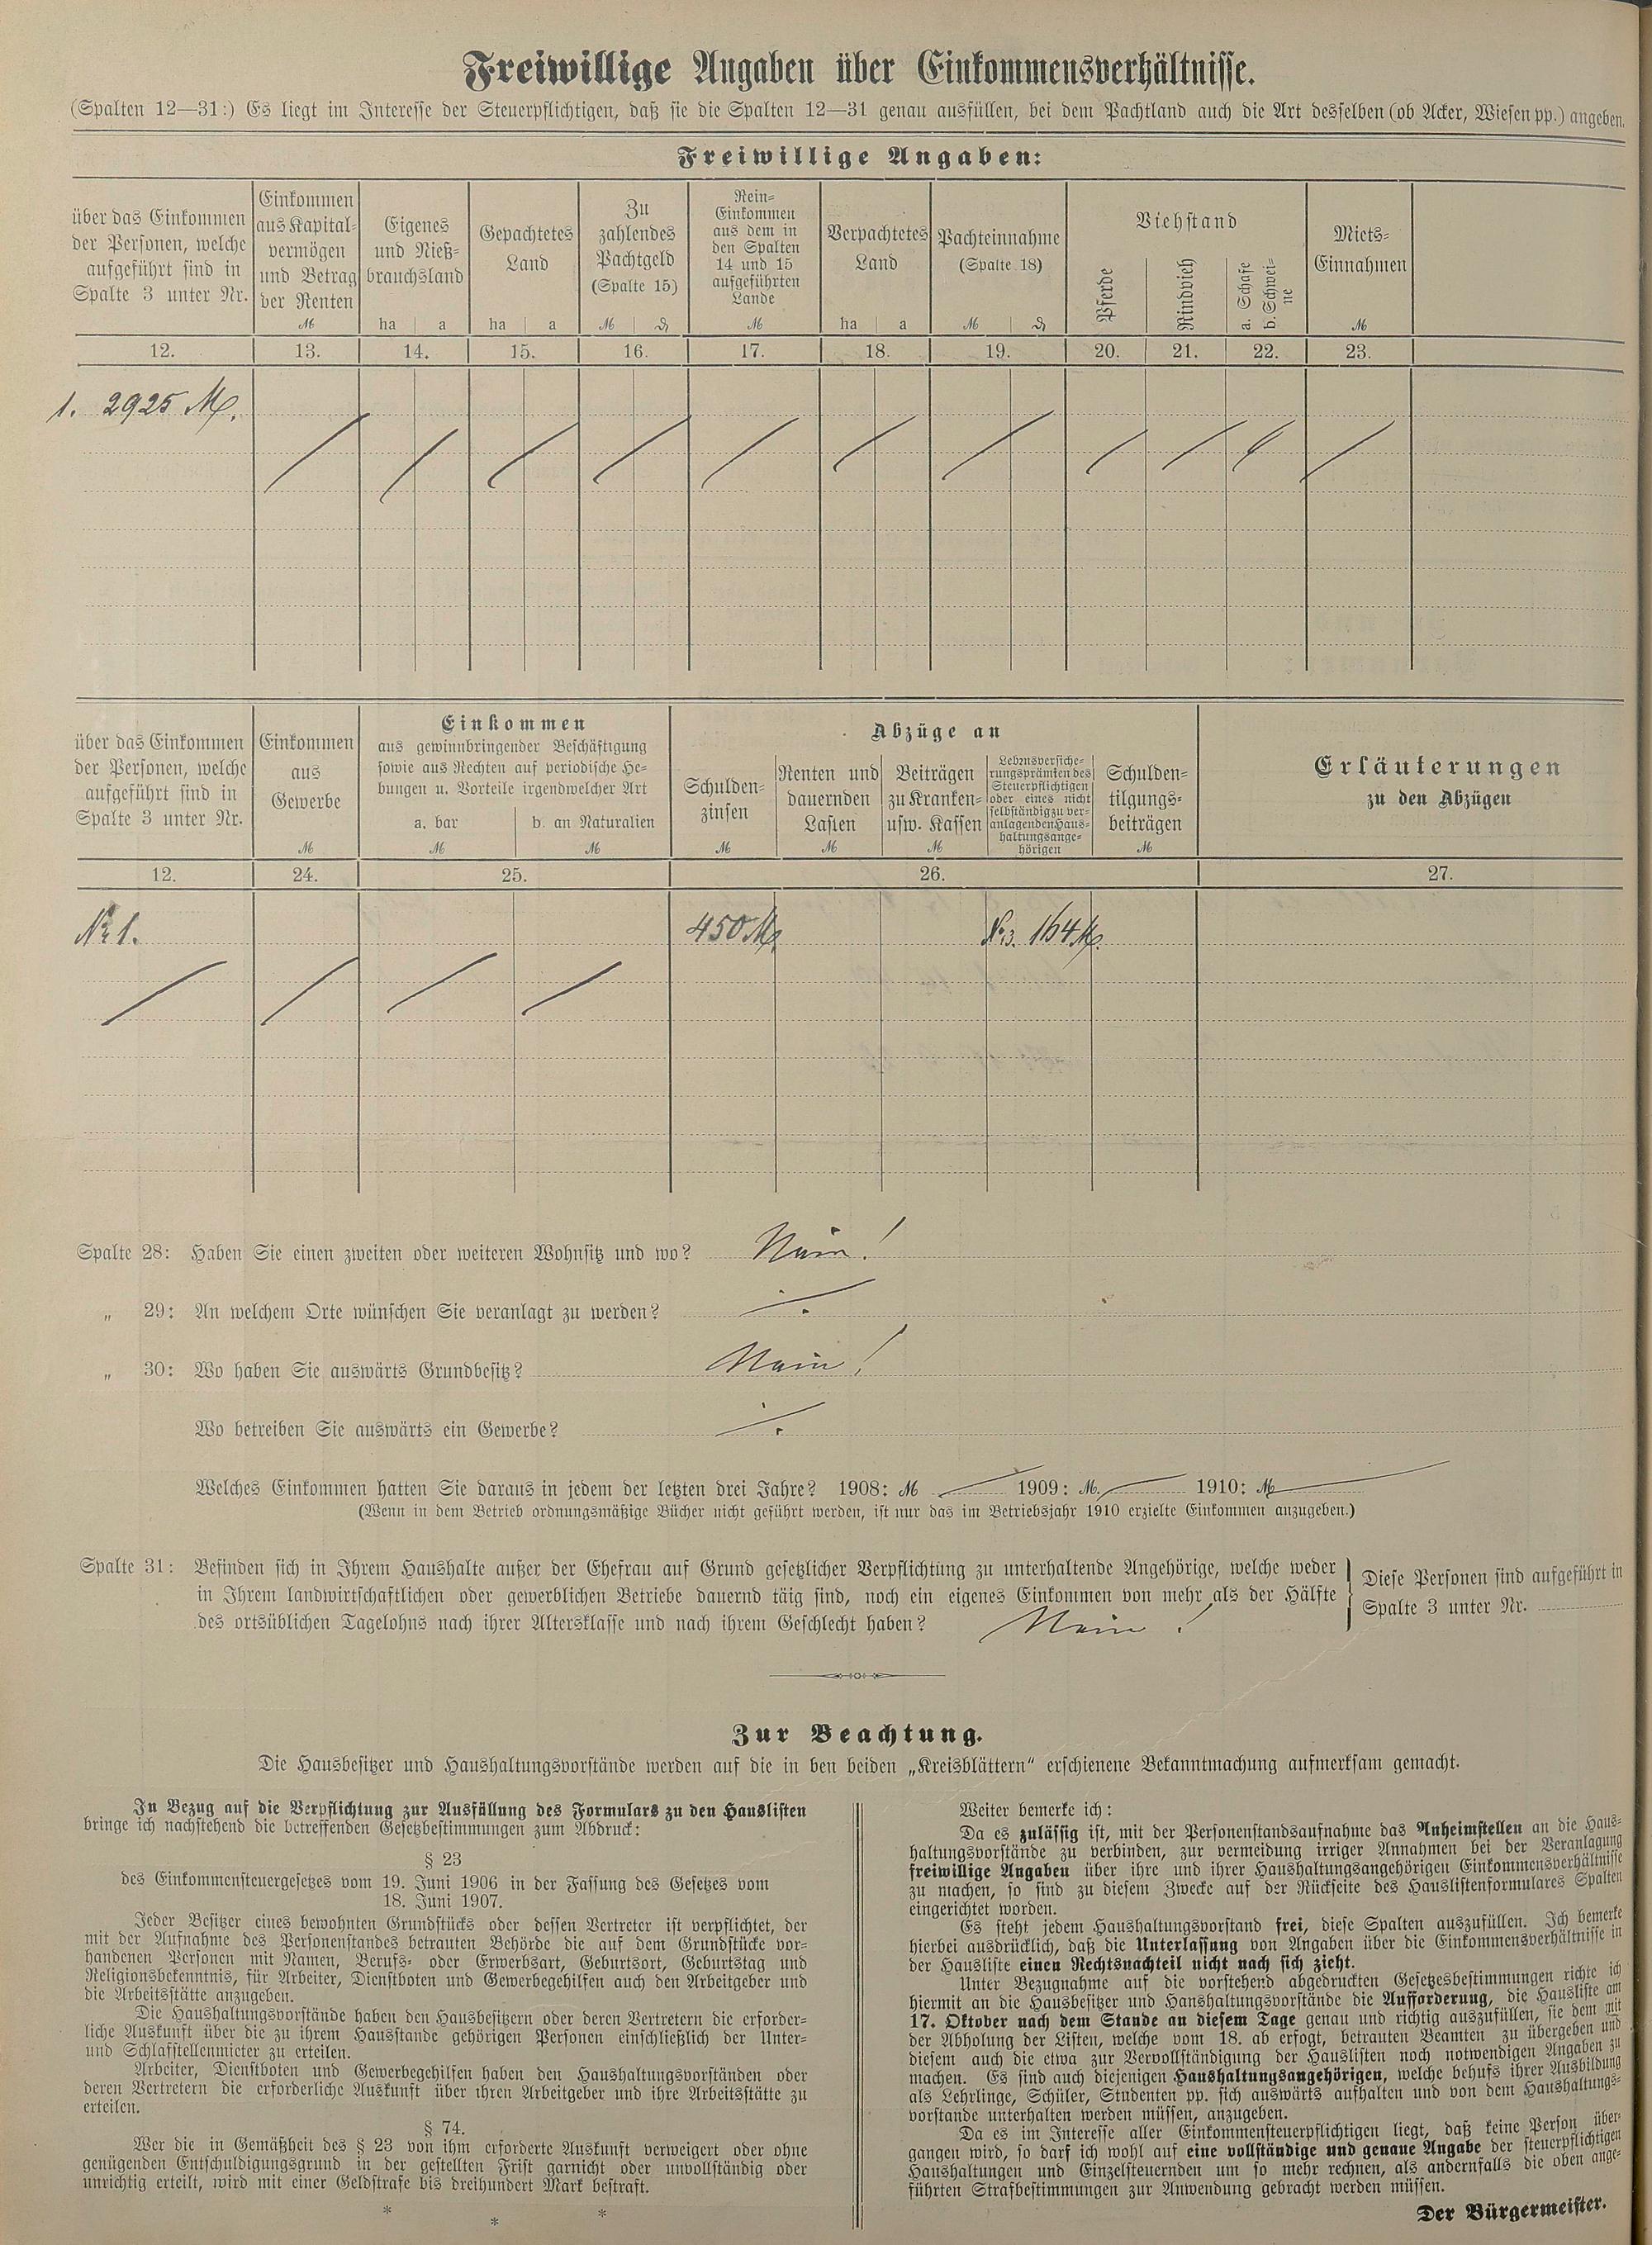 Freiwillige Angaben über Einkommensverhältnisse.
(Spalten 12—31:) Es liegt im Interesse der Steuerpflichtigen, daß sie die Spalten 12—31 genau ausfüllen, bei dem Pachtland auch die Art desselben (ob Acker, Wiesen pp.) angeben.
Freiwillige Angaben:
über das Einkommen
der Personen, welche
aufgeführt sind in
Spalte 3 unter Nr.
Einkommen
aus Kapital-
vermögen
und Betrag
der Renten
M
Eigenes
und Nieß-
brauchsland
ha a
Gepachtetes
Land
ha a
Zu
zahlendes
Pachtgeld
(Spalte 15)
M ₰
Rein-
Einkommen
aus dem in
den Spalten
14 und 15
aufgeführten
Lande
M
Verpachtetes
Land
ha a
Pachteinnahme
(Spalte 18)
M ₰
Viehstand
Pferde
Rindvieh
a. Schafe
b. Schwei-
ne
Miets-
Einnahmen
M
12. 13. 14. 15. 16. 17. 18. 19. 20. 21. 22. 23.
1. 2925 M.
über das Einkommen
der Personen, welche
aufgeführt sind in
Spalte 3 unter Nr.
Einkommen
aus
Gewerbe
M
Einkommen
aus gewinnbringender Beschäftigung
sowie aus Rechten auf periodische He-
bungen u. Vorteile irgendwelcher Art
a. bar b. an Naturalien
M M
Abzüge an
Schulden-
zinsen
M
Renten und
dauernden
Lasten
M
Beiträgen
zu Kranken-
usw. Kassen
M
Lebensversiche-
rungsprämien des
Steuerpflichtigen
oder eines nicht
selbständig zu ver-
anlagenden Haus-
haltungsange-
hörigen
Schulden-
tilgungs-
beiträgen
M
Erläuterungen
zu den Abzügen
12. 24. 25. 26. 27.
Nr 1. 450 M. 164 M.
Spalte 28: Haben Sie einen zweiten oder weiteren Wohnsitz und wo? Nein!
„ 29: An welchem Orte wünschen Sie veranlagt zu werden? ./.
„ 30: Wo haben Sie auswärts Grundbesitz? Nein!
Wo betreiben Sie auswärts ein Gewerbe? ./.
Welches Einkommen hatten Sie daraus in jedem der letzten drei Jahre? 1908: M 1909: M. 1910: M
(Wenn in dem Betrieb ordnungsmäßige Bücher nicht geführt werden, ist nur das im Betriebsjahr 1910 erzielte Einkommen anzugeben.)
Spalte 31: Befinden sich in Ihrem Haushalte außer der Ehefrau auf Grund gesetzlicher Verpflichtung zu unterhaltende Angehörige, welche weder
in Ihrem landwirtschaftlichen oder gewerblichen Betriebe dauernd täig sind, noch ein eigenes Einkommen von mehr als der Hälfte
des ortsüblichen Tagelohns nach ihrer Altersklasse und nach ihrem Geschlecht haben? Nein!
Diese Personen sind aufgeführt in
Spalte 3 unter Nr.
Zur Beachtung.
Die Hausbesitzer und Haushaltungsvorstände werden auf die in ben beiden „Kreisblättern“ erschienene Bekanntmachung aufmerksam gemacht.
In Bezug auf die Verpflichtung zur Ausfüllung des Formulars zu den Hauslisten
bringe ich nachstehend die betreffenden Gesetzbestimmungen zum Abdruck:
§ 23
des Einkommensteuergesetzes vom 19. Juni 1906 in der Fassung des Gesetzes vom
18. Juni 1907.
Jeder Besitzer eines bewohnten Grundstücks oder dessen Vertreter ist verpflichtet, der
mit der Aufnahme des Personenstandes betrauten Behörde die auf dem Grundstücke vor-
handenen Personen mit Namen, Berufs- oder Erwerbsart, Geburtsort, Geburtstag und
Religionsbekenntnis, für Arbeiter, Dienstboten und Gewerbegehilfen auch den Arbeitgeber und
die Arbeitsstätte anzugeben.
Die Haushaltungsvorstände haben den Hausbesitzern oder deren Vertretern die erforder-
liche Auskunft über die zu ihrem Hausstande gehörigen Personen einschließlich der Unter-
und Schlafstellenmieter zu erteilen.
Arbeiter, Dienstboten und Gewerbegehilfen haben den Haushaltungsvorständen oder
deren Vertretern die erforderliche Auskunft über ihren Arbeitgeber und ihre Arbeitsstätte zu
erteilen.
§ 74.
Wer die in Gemäßheit des § 23 von ihm erforderte Auskunft verweigert oder ohne
genügenden Entschuldigungsgrund in der gestellten Frist garnicht oder unvollständig oder
unrichtig erteilt, wird mit einer Geldstrafe bis dreihundert Mark bestraft.
* * *
Weiter bemerke ich:
Da es zulässig ist, mit der Personenstandsaufnahme das Anheimstellen an die Haus-
haltungsvorstände zu verbinden, zur vermeidung irriger Annahmen bei der Veranlagung
freiwillige Angaben über ihre und ihrer Haushaltungsangehörigen Einkommensverhältnisse
zu machen, so sind zu diesem Zwecke auf der Rückseite des Hauslistenformulares Spalten
eingerichtet worden.
Es steht jedem Haushaltungsvorstand frei, diese Spalten auszufüllen. Ich bemerke
hierbei ausdrücklich, daß die Unterlassung von Angaben über die Einkommensverhältnisse in
der Hausliste einen Rechtsnachteil nicht nach sich zieht.
Unter Bezugnahme auf die vorstehend abgedruckten Gesetzesbestimmungen richte ich
hiermit an die Hausbesitzer und Hanshaltungsvorstände die Aufforderung, die Hausliste am
17. Oktober nach dem Stande an diesem Tage genau und richtig auszufüllen, sie dem mit
der Abholung der Listen, welche vom 18. ab erfogt, betrauten Beamten zu übergeben und
diesem auch die etwa zur Vervollständigung der Hauslisten noch notwendigen Angaben zu
machen. Es sind auch diejenigen Haushaltungsangehörigen, welche behufs ihrer Ausbildung
als Lehrlinge, Schüler, Studenten pp. sich auswärts aufhalten und von dem Haushaltungs-
vorstande unterhalten werden müssen, anzugeben.
Da es im Interesse aller Einkommensteuerpflichtigen liegt, daß keine Person über-
gangen wird, so darf ich wohl auf eine vollständige und genaue Angabe der steuerpflichtigen
Haushaltungen und Einzelsteuernden um so mehr rechnen, als andernfalls die oben ange-
führten Strafbestimmungen zur Anwendung gebracht werden müssen.
Der Bürgermeister.